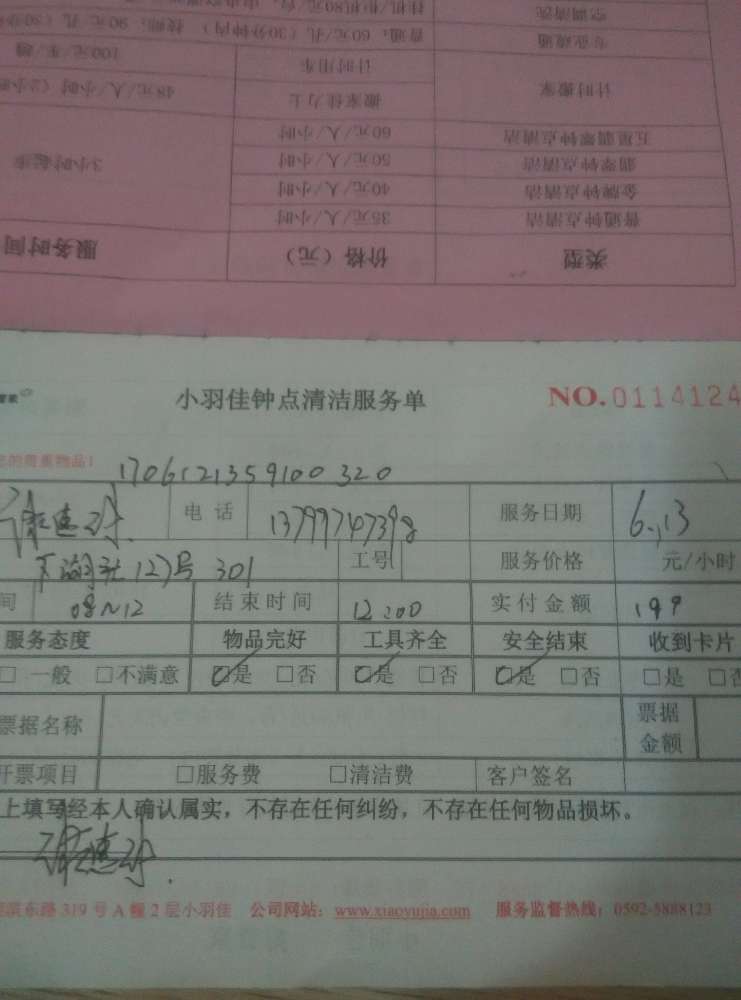 挂机/柜机80元/台，
空调清洗
普通：60元/孔（30分钟内）
专业疏通
100元/车/趟
计时用车
48元/人/小时（2小时
搬家佳力士
计时搬家
60元/人/小时
五星翡翠钟点清洁
3小时起步
50元/人/小时
翡翠钟点清洁
40元/人/小时
金牌钟点清洁
35元/人/小时
普通钟点清洁
服务时间
价格（元）
类型
小羽佳钟点清洁服务单 NO.0114124
的贵重物品！
1706121359100320
电话 服务日期 6.13
127号 301 工号 服务价格 元/小时
间 08~12 结束时间 12:00 实付金额 199
服务态度 物品完好 工具齐全 安全结束 收到卡片
□ 一般 □不满意 ☑是 □否 ☑是 □否 ☑是 □否 □是 □否
票据名称 票据金额
开票项目 □服务费 □清洁费 客户签名
上填写经本人确认属实，不存在任何纠纷，不存在任何物品损坏。
滨东路319号A幢2层小羽佳 公司网站：www.xiaoyujia.com 服务监督热线：0592-5888123